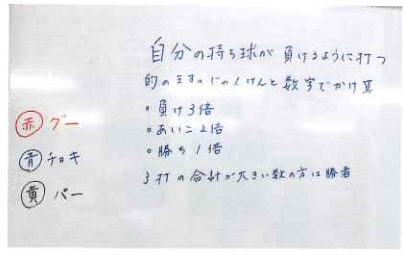 自分の持ち球が負けるように打つ
的のますのじゃんけんと数字でかけ算
・負け3倍
・あいこ2倍
・勝ち1倍
3打の合計が大きい数の方は勝者
赤 グー
青 チョキ
黄 パー